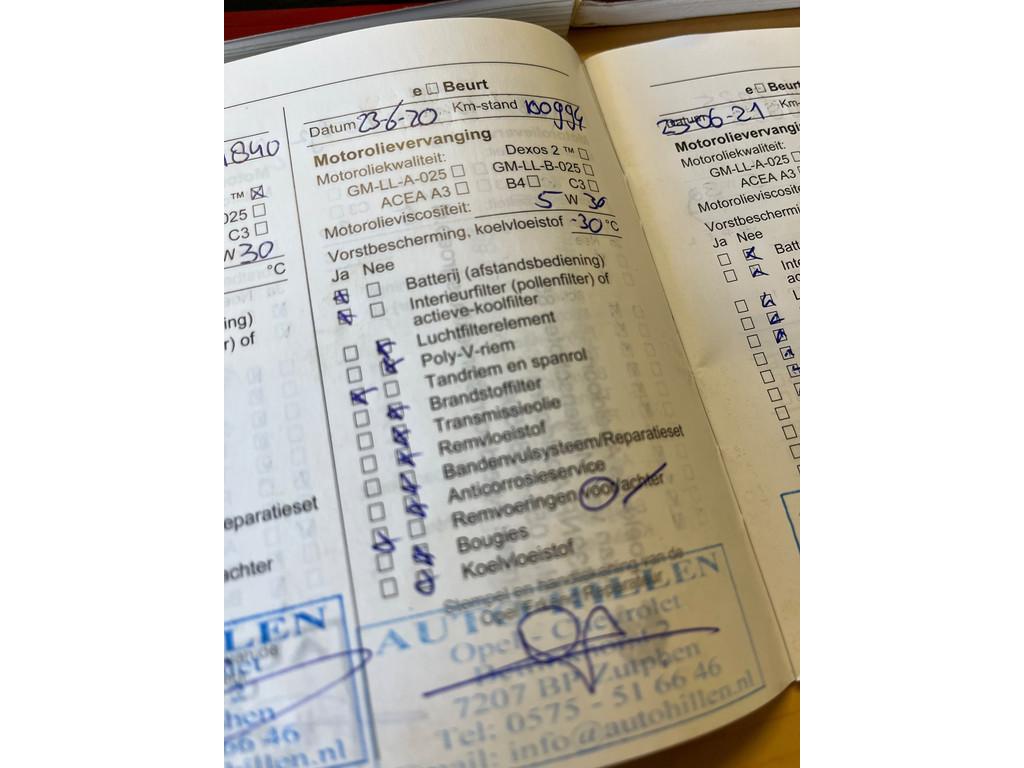 1840
TM
025
C3
W 30
°C
ing)
r) of
eparatieset
achter
LEN
66 46
hillen.nl
e Beurt
Datum 23-6-20 Km-stand 100994
Motorolievervanging
Motoroliekwaliteit: Dexos 2 ™
GM-LL-A-025 GM-LL-B-025
ACEA A3 B4 C3
Motorolieviscositeit: 5 W 30
Vorstbescherming, koelvloeistof -30 °C
Ja Nee
Batterij (afstandsbediening)
Interieurfilter (pollenfilter) of
actieve-koolfilter
Luchtfilterelement
Poly-V-riem
Tandriem en spanrol
Brandstoffilter
Transmissieolie
Remvloeistof
Bandenvulsysteem/Reparatieset
Anticorrosieservice
Remvoeringen voor/achter
Bougies
Koelvloeistof
Stempel en handtekening van de
Opel Reparateur
AUTO HILLEN
Opel - Chevrolet
7207 BP Zutphen
Tel: 0575 - 51 66 46
Email: info@autohillen.nl
e Beurt
Datum 23-06-21 Km-
Motorolievervangi
Motoroliekwaliteit:
GM-LL-A-025
ACEA A3
Motorolieviscositei
Vorstbeschermi
Ja Nee
Batt
Inte
ac
L